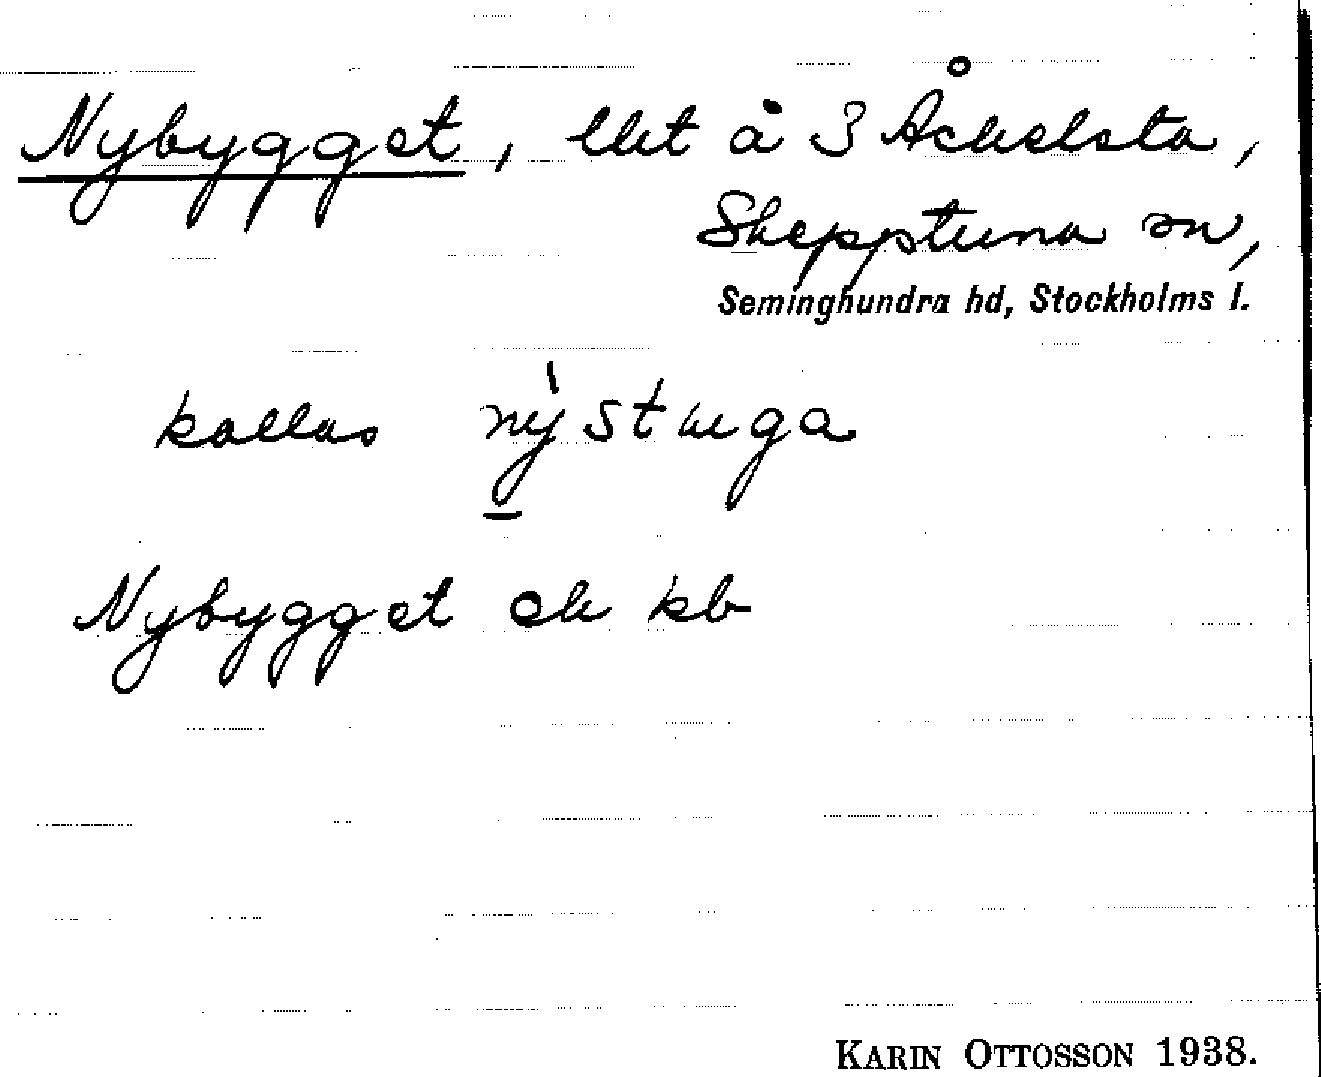 Nybygget, lht å 3 Åckelsta,
Skepptuna sn,
Seminghundra hd, Stockholms l.
kallas nýstuga
Nybygget ek kb
KARIN OTTOSSON 1938.